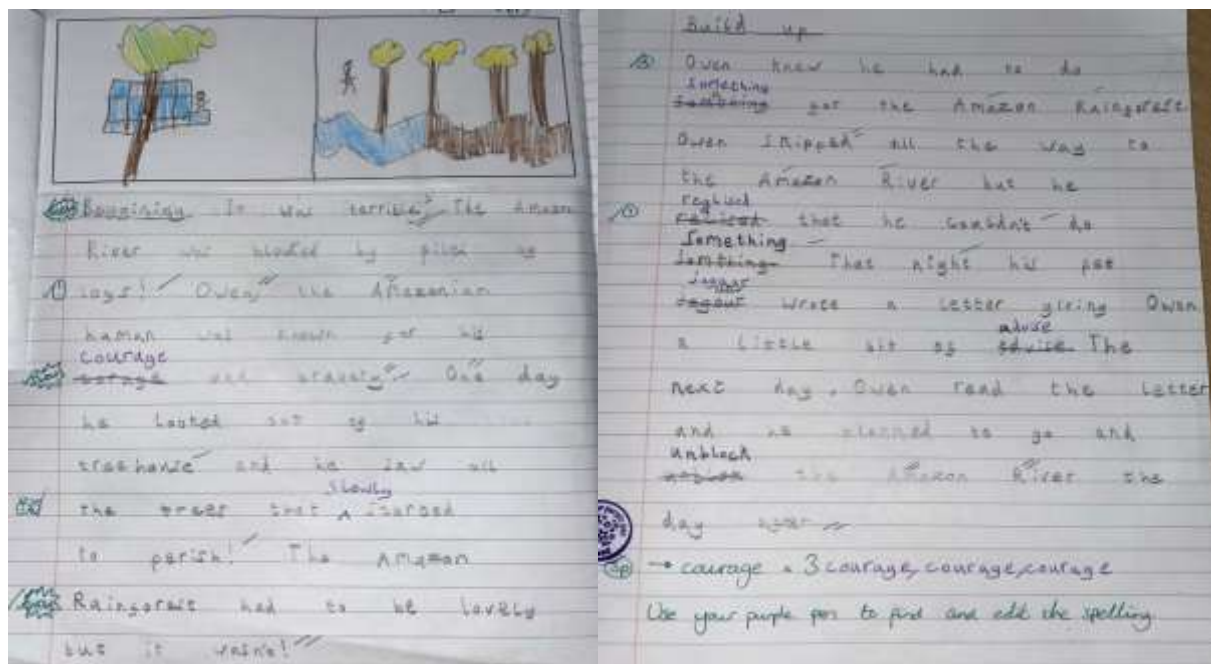 Beggining It was terrible! The Amazon
River was blocked by piles of
logs! Owen, the Amazonian
human was known for his
courage
corage and bravery. One day
he looked out of his
treehouse and he saw all
slowly
the trees that ^ started
to perish! The Amazon
Rainforest had to be lovely
but it wasn't!
Build up
Owen knew he had to do
something
for the Amazon Rainforest
Owen skipped all the way to
the Amazon River but he
that he couldn't do
Something
Somthing That night his pet
jaguar
wrote a letter giving Owen
a little bit of The
next day, Owen read the letter
and he planned to go and
unblock
the Amazon River the
day after
→ courage x 3 courage, courage, courage
Use your purple pen to find and edit the spelling.